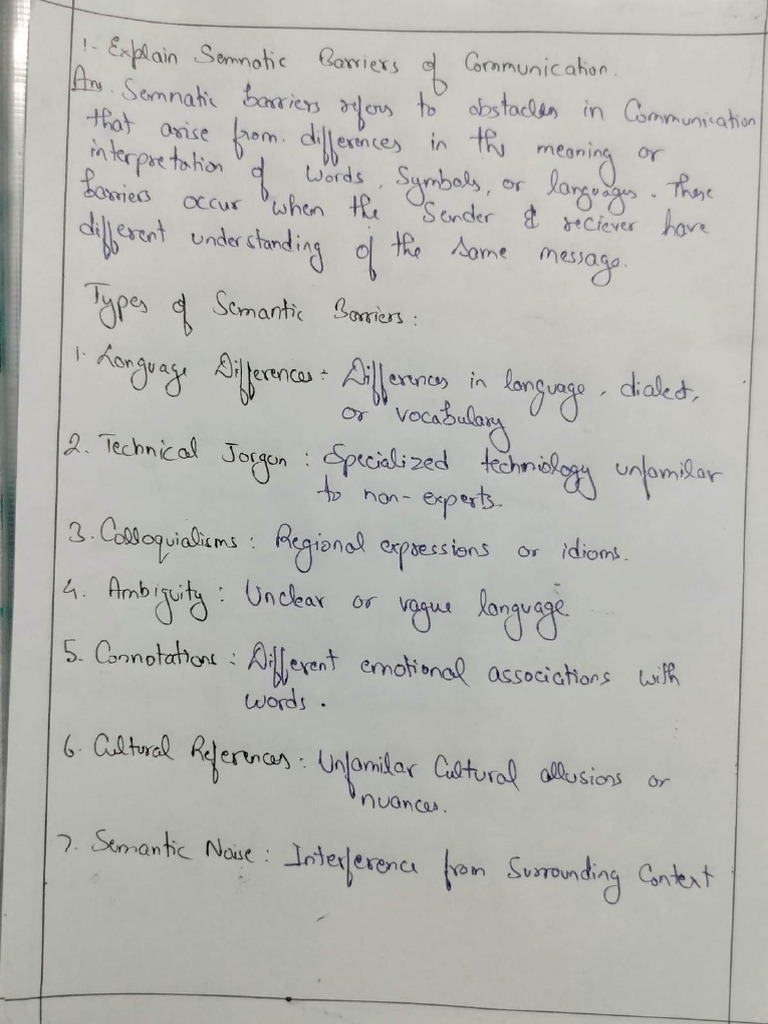 1. Explain Semnatic Barriers of Communication.
Ans. Semnatic barriers refers to obstacles in Communication
that arise from differences in the meaning or
interpretation of words, symbols, or languages. These
barriers occur when the Sender & reciever have
different understanding of the same message.
Types of Semantic Barriers:
1. Language Differences: Differences in language, dialect,
or vocabulary
2. Technical Jorgon: Specialized technology unfamilar
to non-experts.
3. Colloquialisms: Regional expressions or idioms.
4. Ambiguity: Unclear or vague language
5. Connotations: Different emotional associations with
words.
6. Cultural References: Unfamilar Cultural allusions or
nuances.
7. Semantic Noise: Interference from Surrounding Context